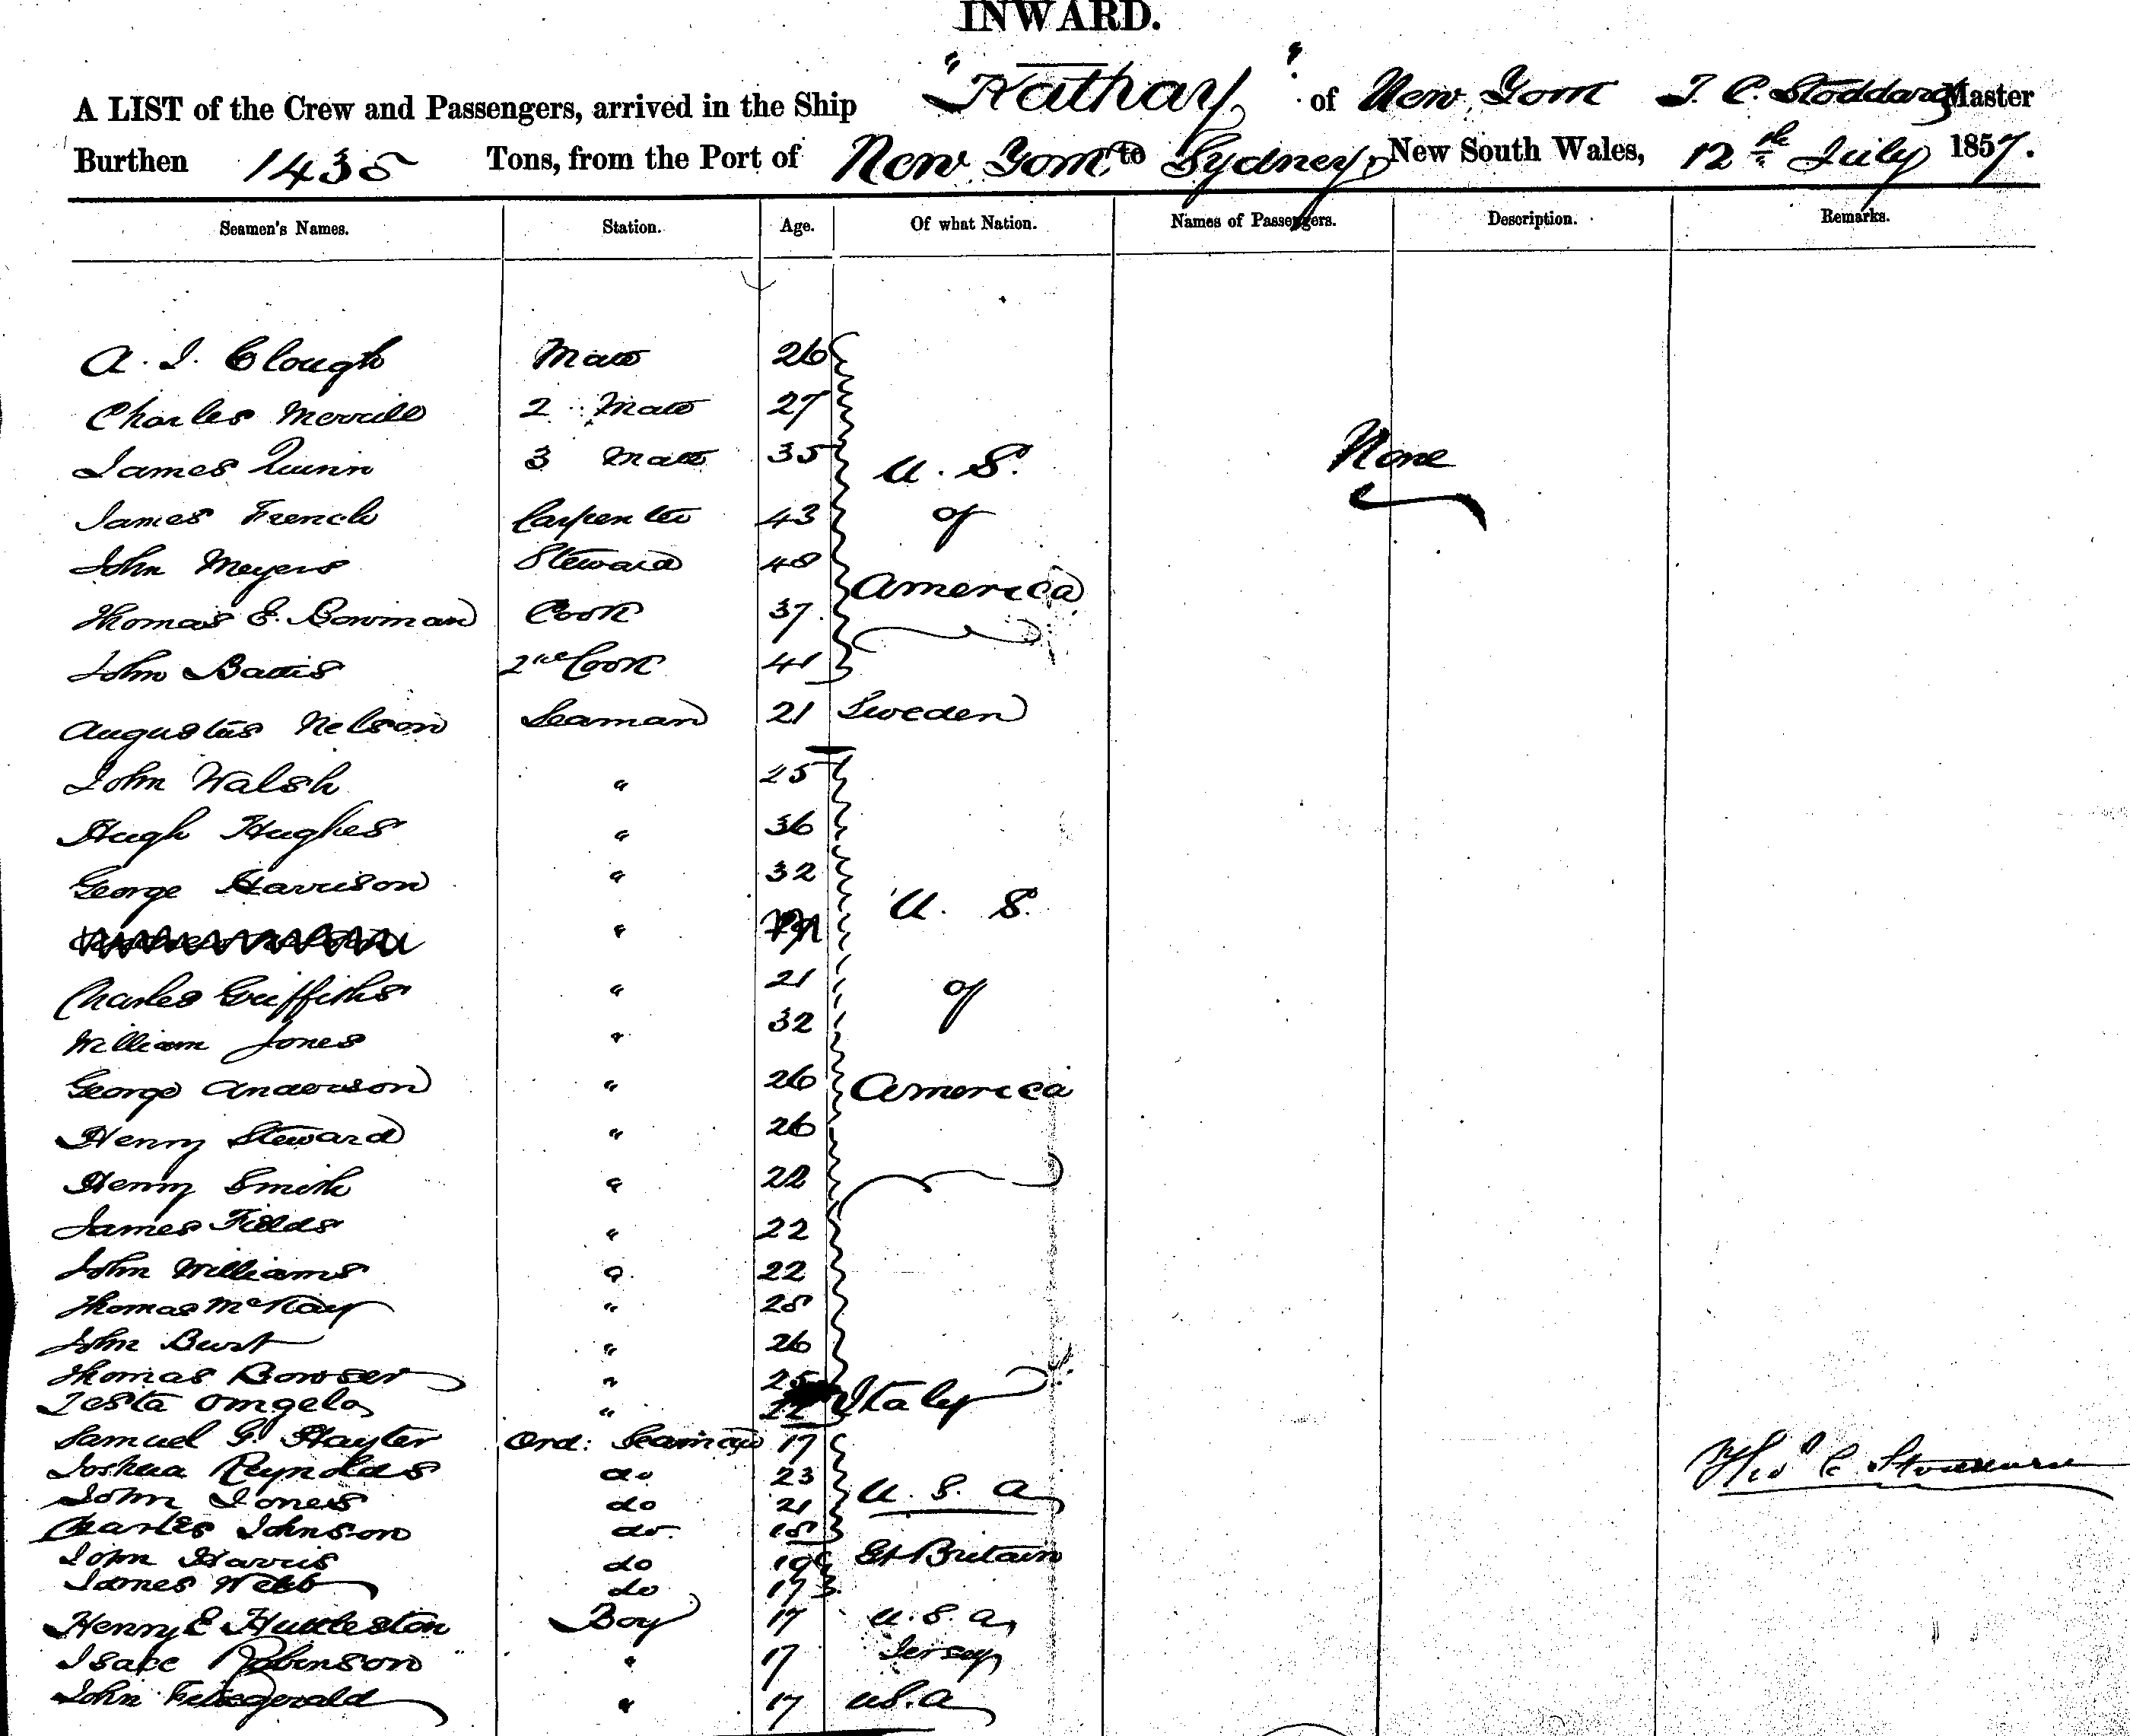 INWARD.
A LIST of the Crew and Passengers, arrived in the Ship "Kathay" of New York T. C. Stoddard Master
Burthen 1438 Tons, from the Port of New York to Sydney, New South Wales, 12th July 1857.
Seamen's Names. Station. Age. Of what Nation. Names of Passengers. Description. Remarks.
A. J. Clough Mate 26
Charles Merrill 2 Mate 27
James Quinn 3 Mate 35 U. S. None
James French Carpenter 43 of
John Meyers Steward 48 America
Thomas E. Bowman Cook 37
John Battis 2nd Cook 41
Augustus Nelson Seaman 21 Sweden
John Walsh " 25
Hugh Hughes " 36
George Harrison " 32 U. S.
"
Charles Griffiths " 21 of
William Jones " 32
George Anderson " 26 America
Henry Steward " 26
Henry Smith " 22
James Fields " 22
John Williams " 22
Thomas McKay " 28
John Burt " 26
Thomas Bowser " 25
Testa Omgelo " 22 Italy
Samuel G. Hayter Ord: Seaman 17
Joshua Reynolds do 23 U. S. A
John Jones do 21
Charles Johnson do 18
John Harris do 19 Gt Britain
James Webb do 17
Henry E Huttleston Boy 17 U. S. A
Isace Robinson " 17 Jersey
John Fitzgerald " 17 U.S.A